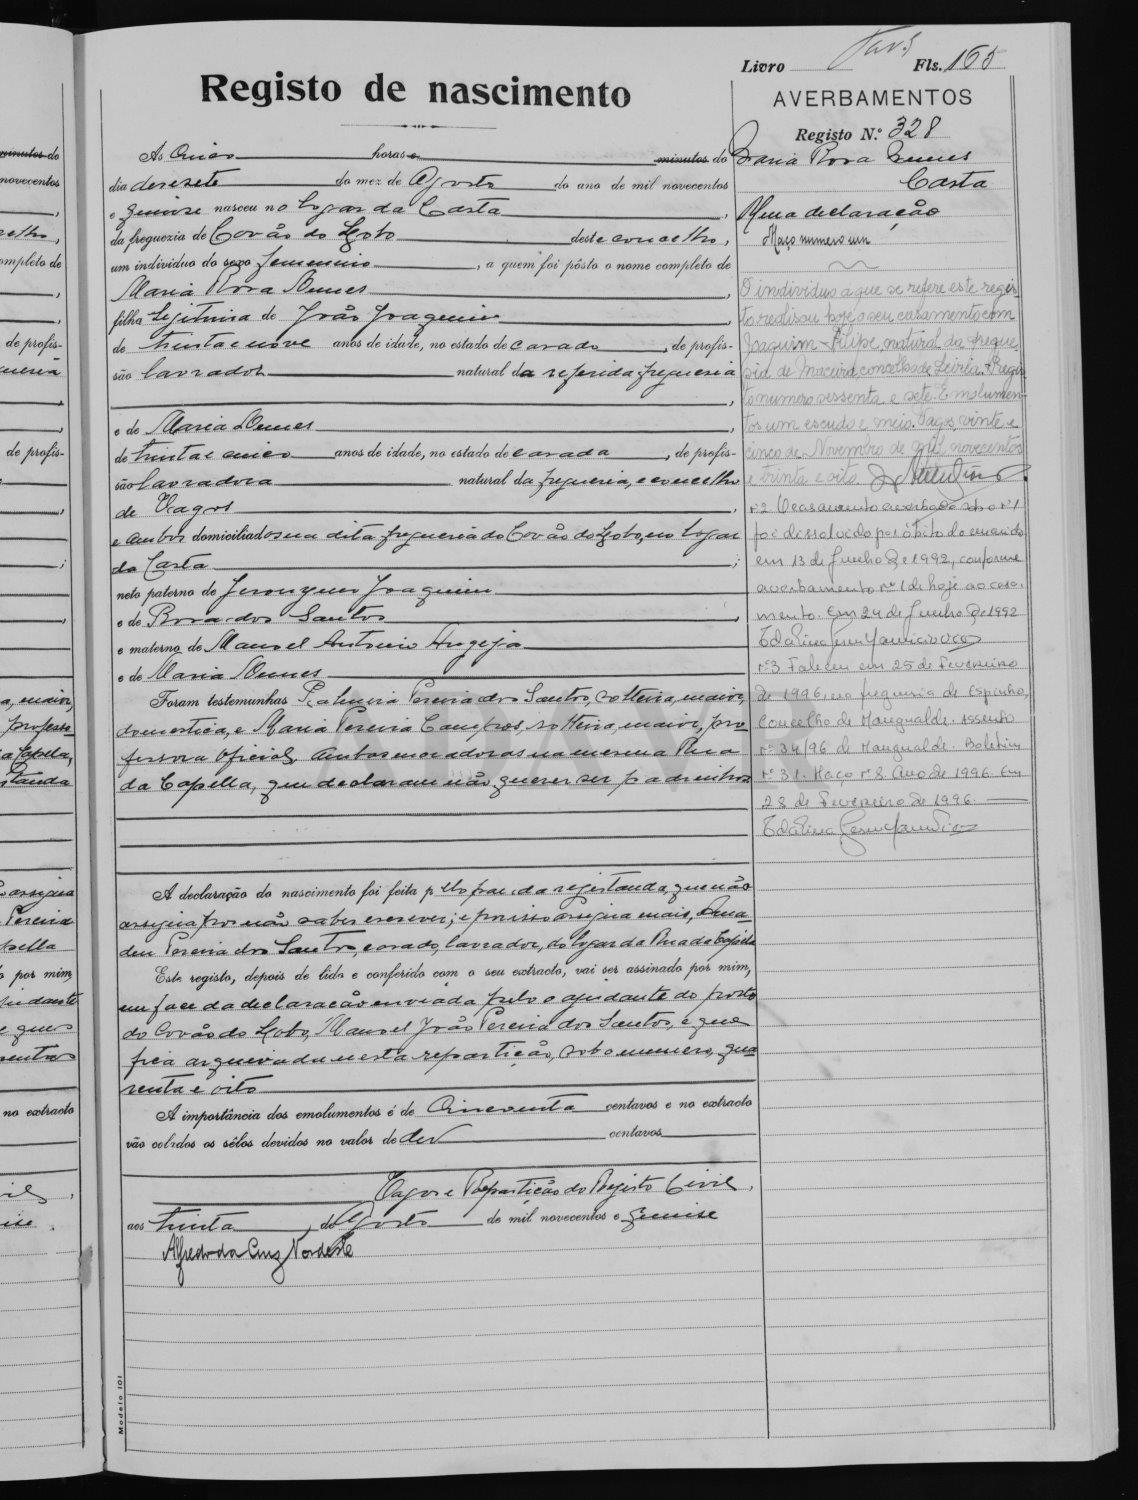 Livro Fls. 165
Registo de nascimento
AVERBAMENTOS
Registo N.º 328
Maria Rosa Nunes
Costa
Uma declaração
Maço numero um
Ás cinco horas e minutos do
dia desesete do mez de Agosto do ano de mil novecentos
e quinze nasceu no logar da Costa,
da freguezia de Covão do Lobo deste concelho,
um individuo do sexo femenino, a quem foi pôsto o nome completo de
Maria Rosa Nunes,
filha legitima de João Joaquim,
de trinta e nove anos de idade, no estado de casado, de profis-
são lavrador natural da referida freguesia
,
e de Maria Nunes,
de trinta e cinco anos de idade, no estado de casada, de profis-
são lavradora natural da freguesia, e concelho
de Vagos,
e ambos domiciliados na dita freguesia do Covão do Lobo, no logar
da Costa;
neto paterno de Jeronymo Joaquim
e de Rosa dos Santos,
e materno de Manoel Antonio Angeja
e de Maria Nunes
Foram testemunhas Pereira dos Santos, solteira, maior,
domestica, e Maria Pereira Campos, solteira, maior, pro
fessora oficial, ambas moradoras na mesma Rua
da Capella, que declararam não querer ser padrinhos
A declaração do nascimento foi feita pelo pae da registanda, que não
assigna por não saber escrever; e por isso assigna mais, Ama-
deu Pereira dos Santos, casado, lavrador, do logar da Rua da Capela
Este registo, depois de lido e conferido com o seu extracto, vai ser assinado por mim,
em face da declaração enviada pelo o ajudante do posto
do Covão do Lobo, Manoel João Pereira dos Santos, e que
fica arquivada nesta repartição, sob o numero, qua
renta e oito
A importância dos emolumentos é de Cincoenta centavos e no extracto
vão colados os sêlos devidos no valor de dez centavos
Vagos e Repartição do Registo Civil,
aos trinta de Agosto de mil novecentos e quinze
Alfredo da Cruz Nordeste
O individuo a que se refere este regis-
to realisou hoje o seu casamento com
Joaquim Filipe, natural da fregue
sia de Maceira, concelho de Leiria. Regis
to numero sessenta e sete. Emolumen-
tos um escudo e meio. Vagos, vinte e
cinco de Novembro de mil novecentos
e trinta e oito.
nº2 O casamento averbado sob o nº1
foi dissolvido por óbito do marido
em 13 de Junho de 1992, conforme
averbamento nº 1 de hoje ao casa-
mento. Em 24 de Junho de 1992
nº3 Faleceu em 25 de Fevereiro
de 1996, na freguesia de Espinho,
Concelho de Mangualde. Assento
nº 34/96 de Mangualde. Boletim
nº 31. Maço nº 8. Ano de 1996. Em
28 de Fevereiro de 1996.
Modelo 101